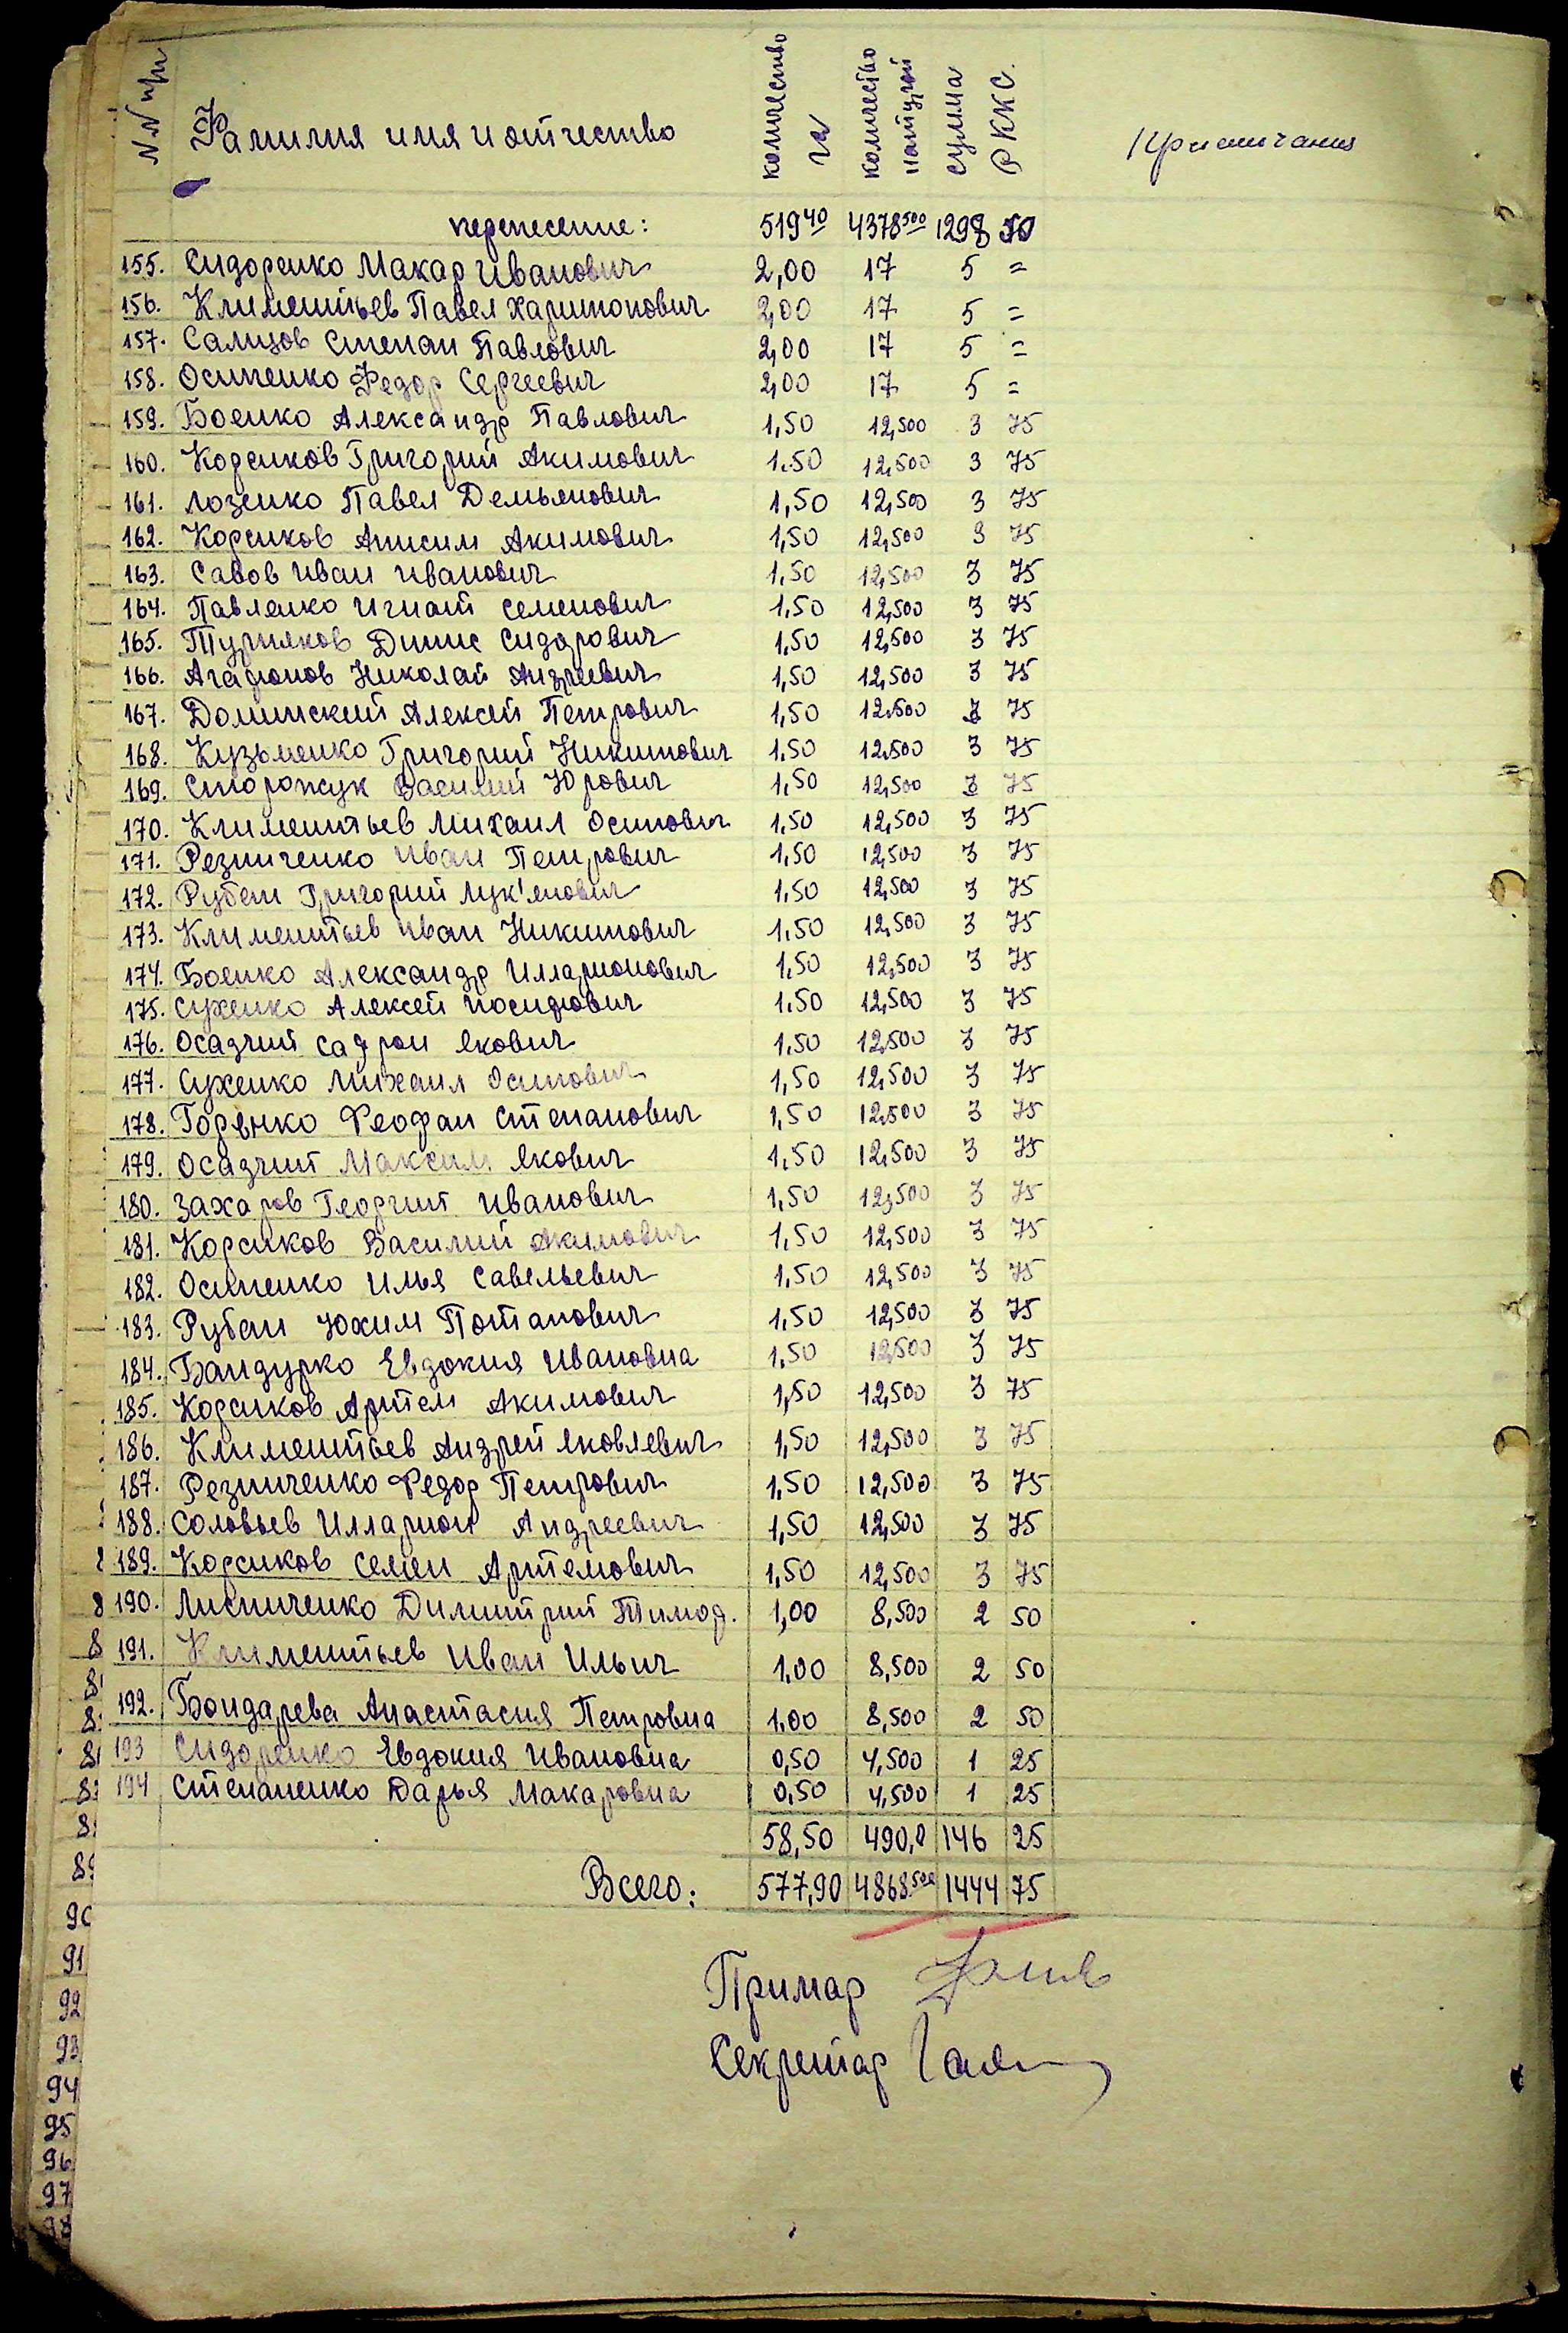 N.N п/п Фамилия имя и отчество количество га количество натурой сумма РККС. Примичания
перенесение: 519 40 4378 500 1298 50
155. Сидоренко Макар Иванович 2,00 17 5 =
156. Климентьев Павел Харитонович 2,00 17 5 =
157. Сализов Степан Павлович 2,00 17 5 =
158. Осипенко Федор Сергеевич 2,00 17 5 =
159. Боенко Александр Павлович 1,50 12,500 3 75
160. Корсиков Григорий Акимович 1.50 12,500 3 75
161. Лозенко Павел Демьянович 1,50 12,500 3 75
162. Корсиков Анисим Акимович 1,50 12,500 3 75
163. Савов Иван Иванович 1,50 12,500 3 75
164. Павленко Игнат Семенович 1,50 12,500 3 75
165. Турняков Динис Сидорович 1,50 12,500 3 75
166. Агафонов Николай Андреевич 1,50 12,500 3 75
167. Долинский Алексей Петрович 1,50 12.500 3 75
168. Кузьменко Григорий Никитович 1.50 12.500 3 75
169. Сторожук Василий Юрович 1,50 12,500 3 75
170. Климентьев Михаил Осипович 1,50 12,500 3 75
171. Резниченко Иван Петрович 1,50 12,500 3 75
172. Рубан Григорий Лук'янович 1,50 12,500 3 75
173. Климентьев Иван Никитович 1,50 12,500 3 75
174. Боенко Александр Илларионович 1,50 12,500 3 75
175. Сухенко Алексей Иосифович 1.50 12,500 3 75
176. Осадчий Сафрон Якович 1,50 12,500 3 75
177. Сухенко Михаил Осипович 1,50 12,500 3 75
178. Горенко Феофан Степанович 1,50 12,500 3 75
179. Осадчий Максим Якович 1,50 12,500 3 75
180. Захаров Георгий Иванович 1,50 12,500 3 75
181. Корсиков Василий Акимович 1,50 12,500 3 75
182. Осипенко Илья Савельевич 1,50 12,500 3 75
183. Рубан Юхим Потапович 1,50 12,500 3 75
184. Бандурко Евдокия Ивановна 1,50 12,500 3 75
185. Корсиков Артем Акимович 1,50 12,500 3 75
186. Климентьев Андрей Яковлевич 1,50 12,500 3 75
187. Резниченко Федор Петрович 1,50 12,500 3 75
188. Соловьев Илларион Андреевич 1,50 12,500 3 75
189. Корсиков Семен Артемович 1,50 12,500 3 75
190. Лисниченко Димитрий Тимоф. 1,00 8,500 2 50
191. Климентьев Иван Ильич 1,00 8,500 2 50
192. Бондарева Анастасия Петровна 1,00 8,500 2 50
193 Сидоренко Евдокия Ивановна 0,50 4,500 1 25
194 Степаненко Дарья Макаровна 0,50 4,500 1 25
58,50 490,0 146 25
Всего: 577,90 4868.500 1444 75
90
91
92
93
94
95
96
97
98
Примар
Секретар